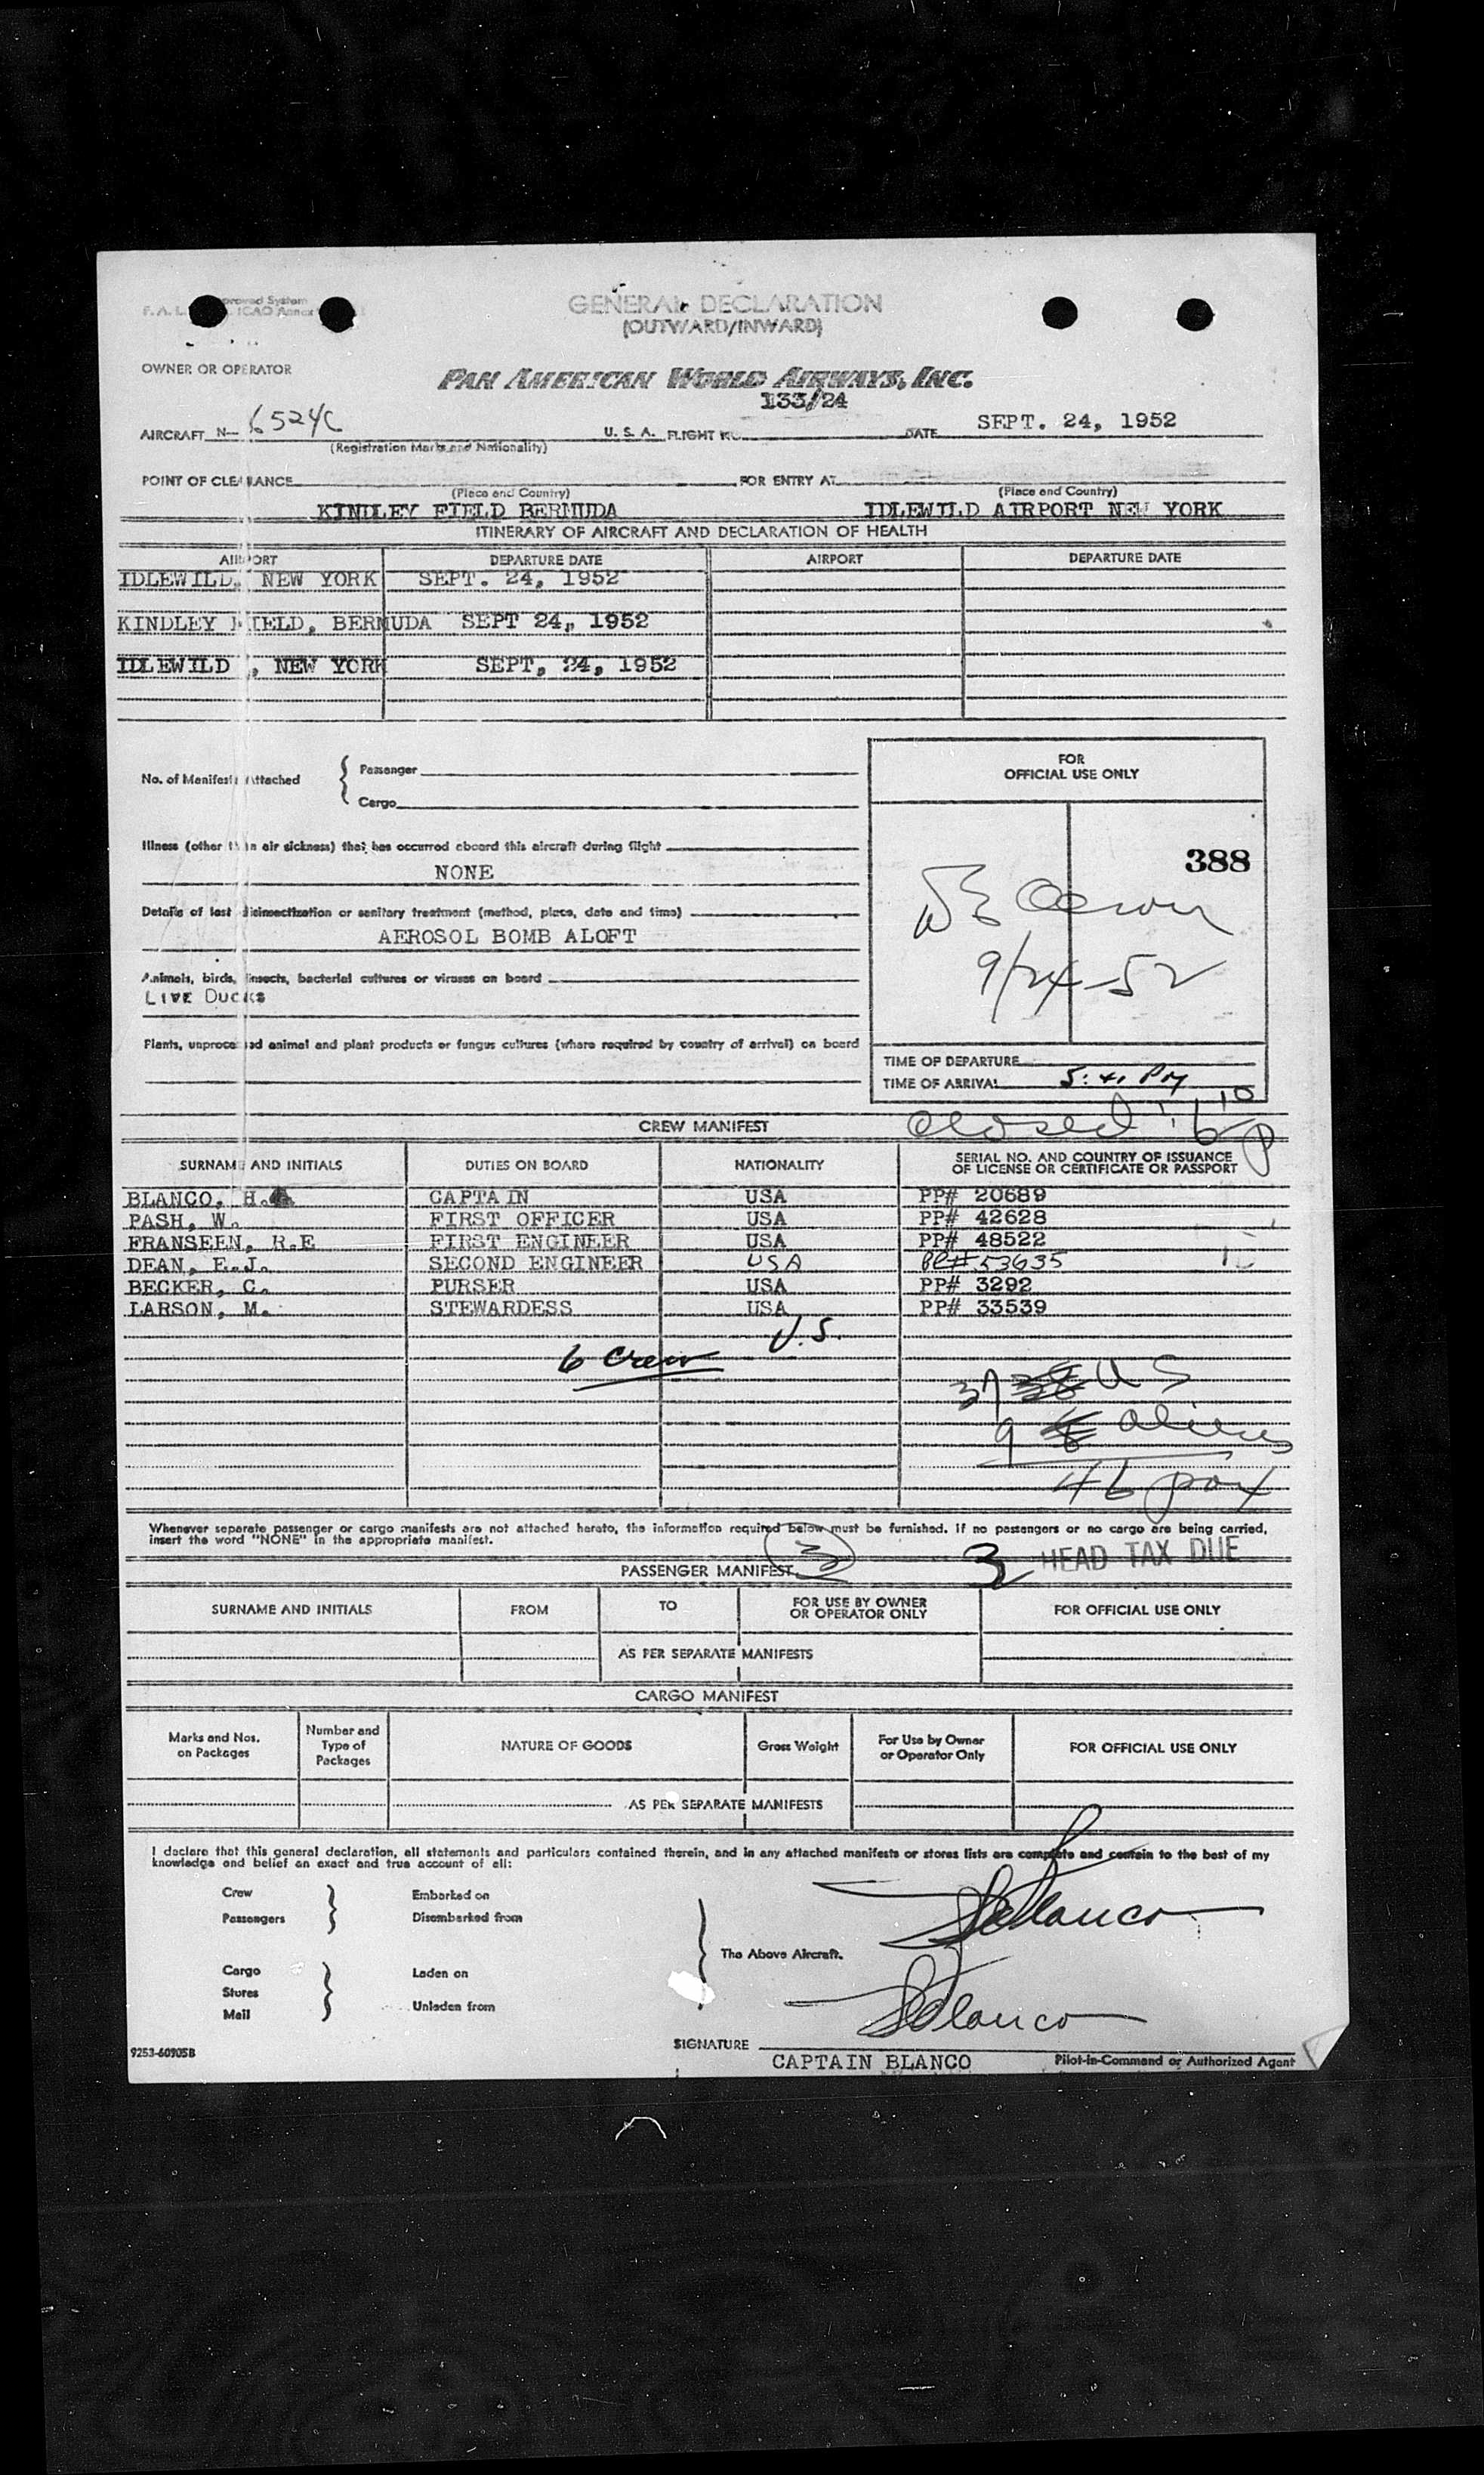 GENERAL DECLARATION
(OUTWARD/INWARD)
F. A. L. proved System
ICAO Annex
OWNER OR OPERATOR
PAN AMERICAN WORLD AIRWAYS, INC.
133/24
AIRCRAFT N— 6524C U. S. A. FLIGHT NO. DATE SEPT. 24, 1952
(Registration Marks and Nationality)
POINT OF CLEARANCE FOR ENTRY AT
(Place and Country) (Place and Country)
KINDLEY FIELD BERMUDA IDLEWILD AIRPORT NEW YORK
ITINERARY OF AIRCRAFT AND DECLARATION OF HEALTH
AIRPORT DEPARTURE DATE AIRPORT DEPARTURE DATE
IDLEWILD, NEW YORK SEPT. 24, 1952
KINDLEY FIELD, BERMUDA SEPT 24, 1952
IDLEWILD , NEW YORK SEPT, 24, 1952
No. of Manifests Attached
Passenger
Cargo
FOR
OFFICIAL USE ONLY
388
9/24-52
TIME OF DEPARTURE
TIME OF ARRIVAL 5:41 PM
Illness (other than air sickness) that has occurred aboard this aircraft during flight
NONE
Details of last disinsectization or sanitary treatment (method, place, date and time)
AEROSOL BOMB ALOFT
Animals, birds, insects, bacterial cultures or viruses on board
LIVE DUCKS
Plants, unprocessed animal and plant products or fungus cultures (where required by country of arrival) on board
closed: 6 10 P
CREW MANIFEST
SURNAME AND INITIALS DUTIES ON BOARD NATIONALITY SERIAL NO. AND COUNTRY OF ISSUANCE
OF LICENSE OR CERTIFICATE OR PASSPORT
BLANCO, H. CAPTAIN USA PP# 20689
PASH, W. FIRST OFFICER USA PP# 42628
FRANSEEN, R.E FIRST ENGINEER USA PP# 48522
DEAN, E.J. SECOND ENGINEER USA 53635
BECKER, C. PURSER USA PP# 3292
LARSON, M. STEWARDESS USA PP# 33539
U.S.
6 Crew
37 US
9 aliens
46 pax
Whenever separate passenger or cargo manifests are not attached hereto, the information required below must be furnished. If no passengers or no cargo are being carried,
insert the word "NONE" in the appropriate manifest.
3 3 HEAD TAX DUE
PASSENGER MANIFEST
SURNAME AND INITIALS FROM TO FOR USE BY OWNER
OR OPERATOR ONLY FOR OFFICIAL USE ONLY
AS PER SEPARATE MANIFESTS
CARGO MANIFEST
Marks and Nos.
on Packages
Number and
Type of
Packages
NATURE OF GOODS Gross Weight For Use by Owner
or Operator Only FOR OFFICIAL USE ONLY
AS PER SEPARATE MANIFESTS
I declare that this general declaration, all statements and particulars contained therein, and in any attached manifests or stores lists are complete and contain to the best of my
knowledge and belief an exact and true account of all:
Crew Embarked on
Passengers Disembarked from
The Above Aircraft.
Cargo Laden on
Stores
Mail Unladen from
HBlanco
HBlanco
SIGNATURE
9253-60905B CAPTAIN BLANCO Pilot-in-Command or Authorized Agent